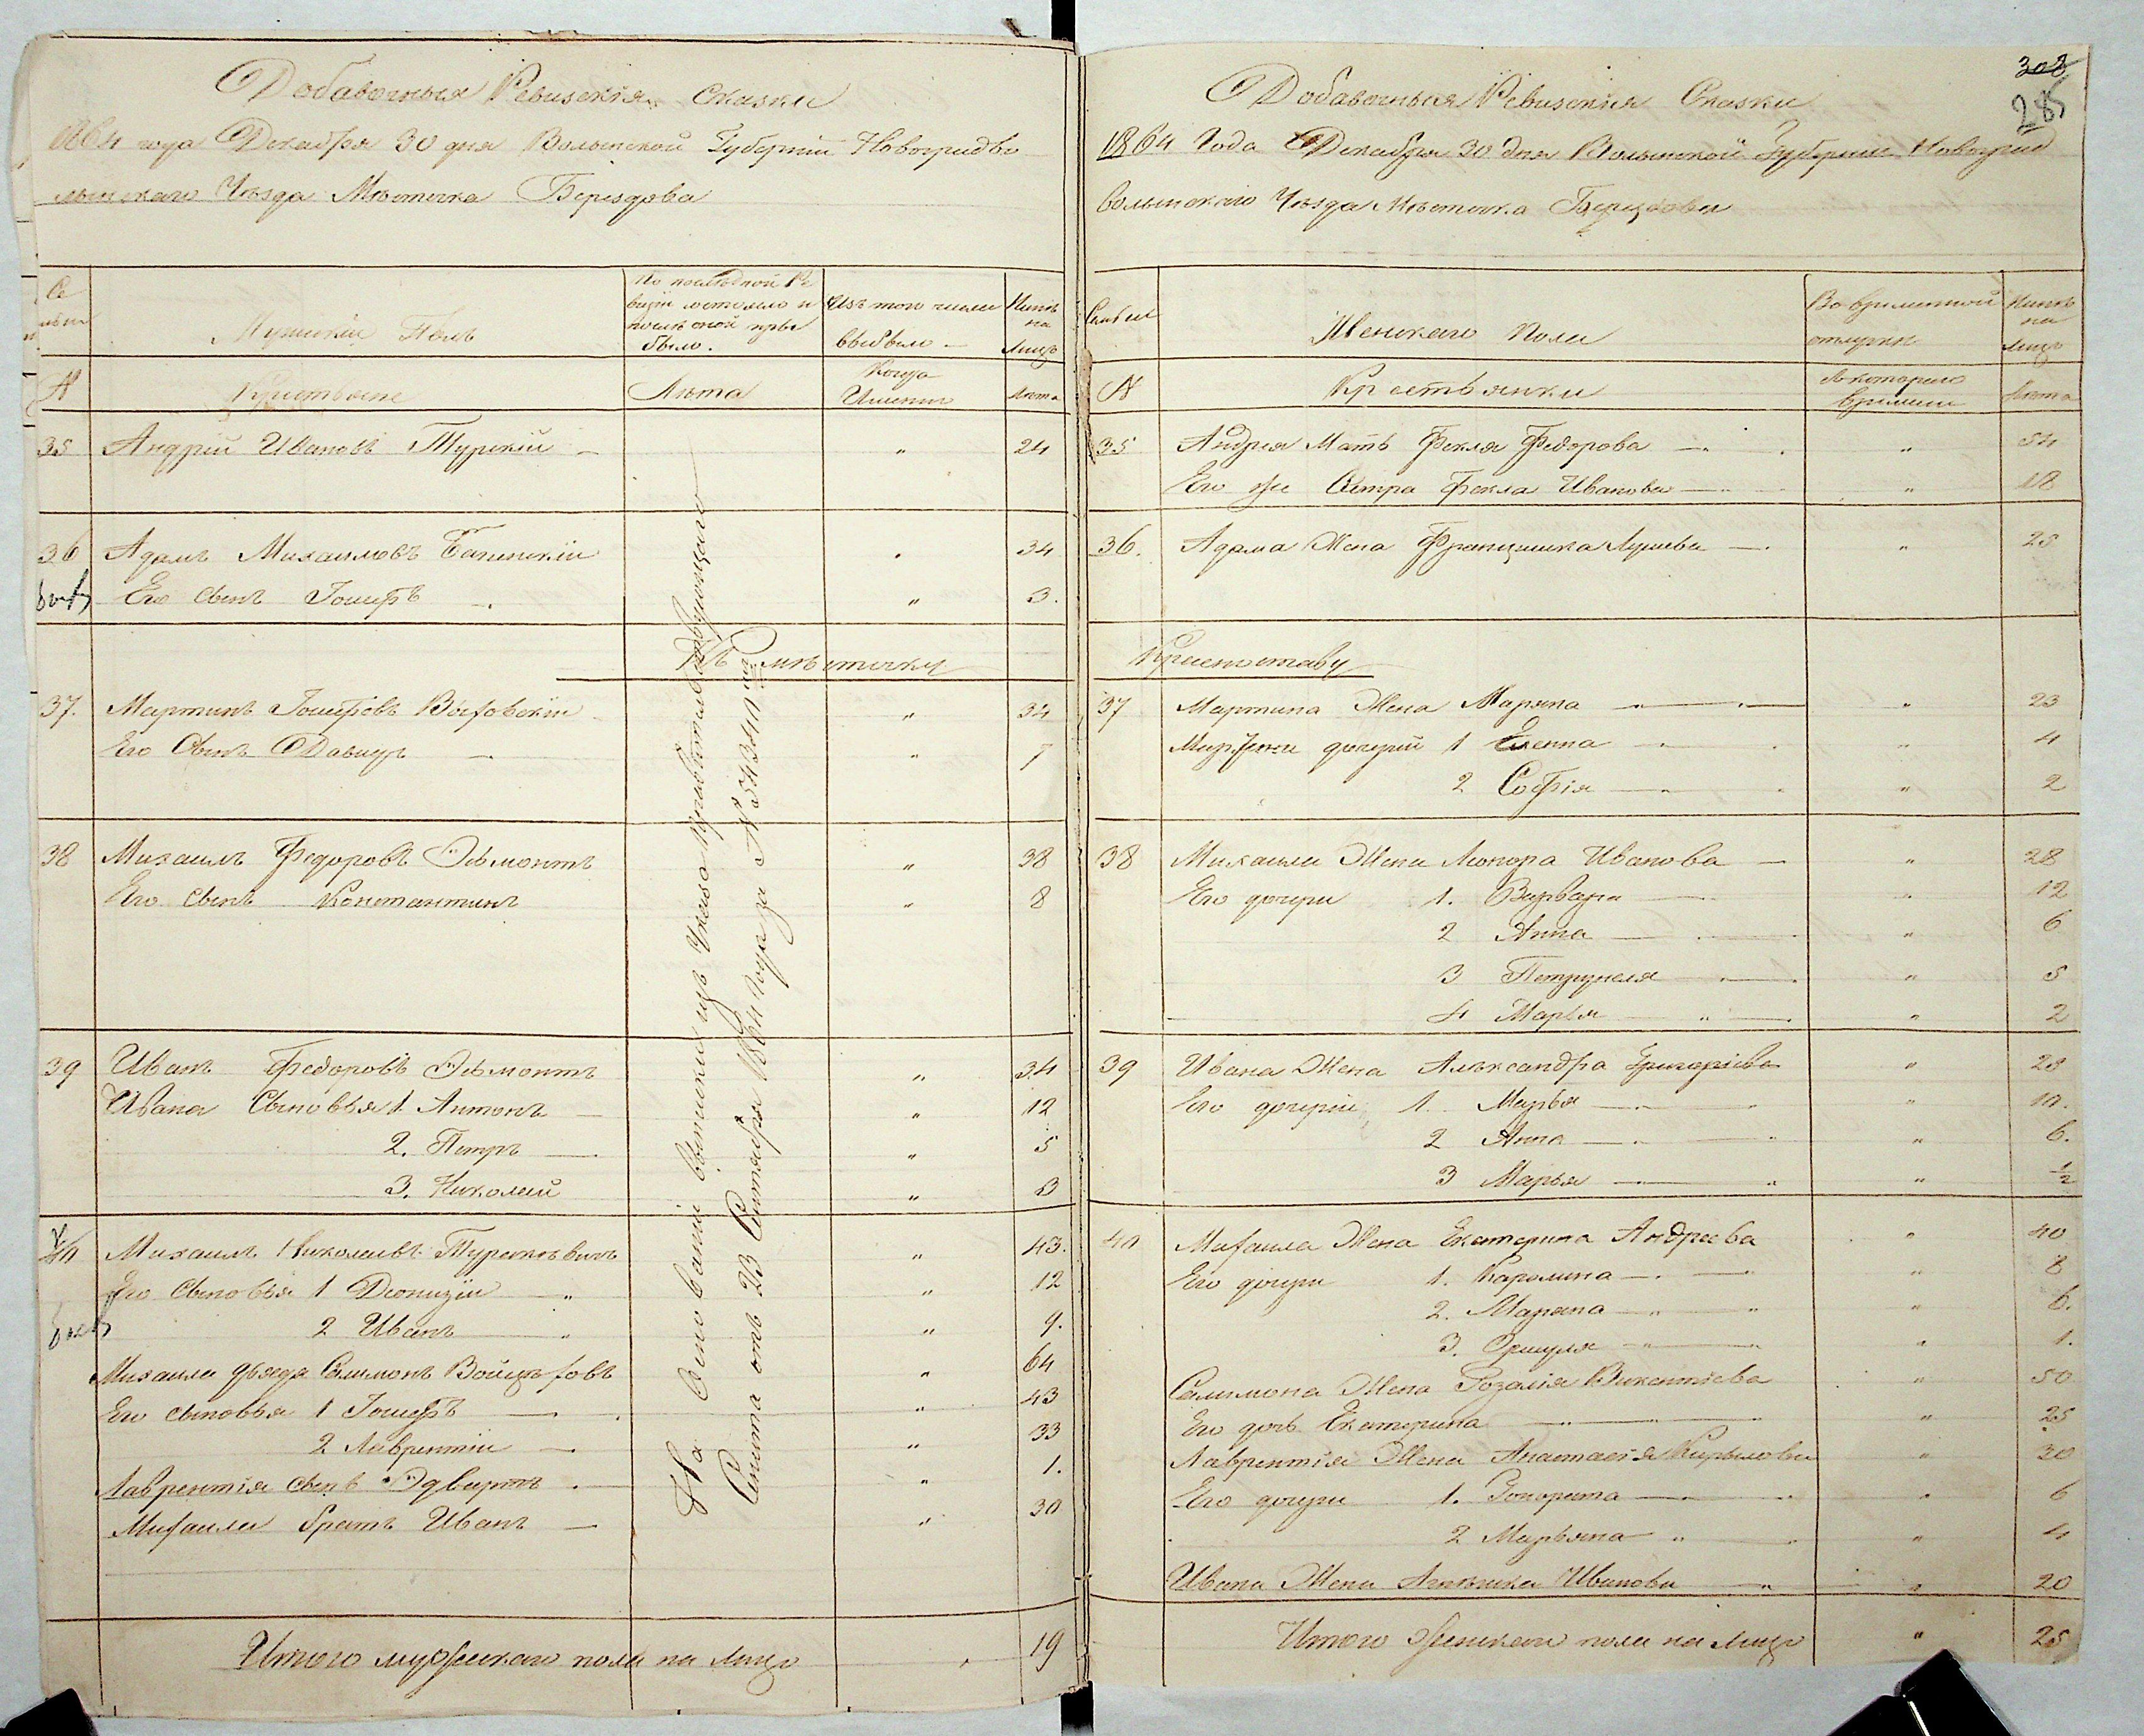 Добавочныя Ревизскія Сказки
1864 года Декабря 30 дня Волынской Губерніи Новоградво
лынскаго Уѣзда Мѣстечка Берездова
По послѣдной Ре
визіи состояло и
послѣ оной при
было.
Изъ того числа
выбыло
Нынѣ
на
Лицо
Мужескій Полъ
№
Крестьяне
Лѣта
Когда
Именно
Лѣта
35 Андрій Ивановъ Турскій " 24
36 Адамъ Михаиловъ " 34
Его Сынъ Іосифъ " 3.
Въ мѣстечку
37. Мартинъ Іосифовъ "  34
Его Сынъ Давидъ " 7
38 Михаилъ Федоровъ Эймонтъ " 38
Его сынъ Константинъ " 8
39 Иванъ Федоровъ Эймонтъ " 34
Ивана Сыновья 1. Антонъ " 12
2. Петръ " 5
3. Николай " 3
40 Михаилъ Николаевъ " 43.
Его Сыновья 1 Діонизій " 12
2 Иванъ " 9.
Михаила дядя Салимонъ " 64
Его сыновья 1 Іосифъ " 43
2 Лаврентій " 33
Лаврентія сынъ Эдвартъ " 1.
Михаила братъ Иванъ " 30
Итого мужескаго пола на лицо 19
На Основаніи выписки изъ Указа Правительствующаго
Сената отъ 23 Сентября 1864 года за № 54340 мъ
308
285
Добавочныя Ревизскія Сказки
1864 Года Декабря 30 дня Волынской Губерніи Новоград
волынскаго Уѣзда Мѣстечка Берездова
Семьи
Женскаго Пола
Во временной
отлучкѣ
Нынѣ
на
Лицо
№
Крестьянки
Съ котораго
времени
Лѣта
35 Андрея Мать Фекла Федорова " 54
Его же Сестра Фекла Иванова " 18
36. Адама Жена Францишка " 23
Красноставу
37 Мартина Жена Маряна " 23
дочерій 1 Елена " 4
2 Софія " 2
38 Михаила Жена Леонора Иванова " 28
Его дочери 1. Варвара " 12
2 Анна " 6
3 Петрунеля " 5
4 Марья " 2
39 Ивана Жена Александра Григоріева " 28
Его дочерій 1. Марья " 10.
2 Анна " 6.
3 Марья " ½
40 Михаила Жена Екатерина Андреева " 40
Его дочери 1. Каролина " 8
2. Маряна " 6.
3. Оршуля " 1.
Салимона Жена Розалія Викентіева " 50
Его дочь Екатерина " 25
Лаврентія Жена Анастасія Кирылова " 30
Его дочери 1. Гонората " 6
2 Марьяна " 4
Ивана Жена Иванова " 20
Итого женскаго пола на лицо " 25